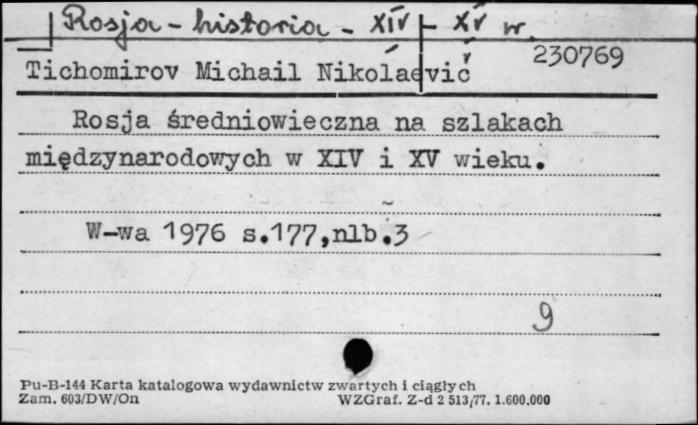 Rosja - historia - XIV - XV w.
230769
Tichomirov Michail Nikolaevič
Rosja średniowieczna na szlakach
międzynarodowych w XIV i XV wieku.
W-wa 1976 s.177,nlb.3
9
Pu-B-144 Karta katalogowa wydawnictw zwartych i ciągłych
Zam. 603/DW/On WZGraf. Z-d 2 513/77. 1.600.000